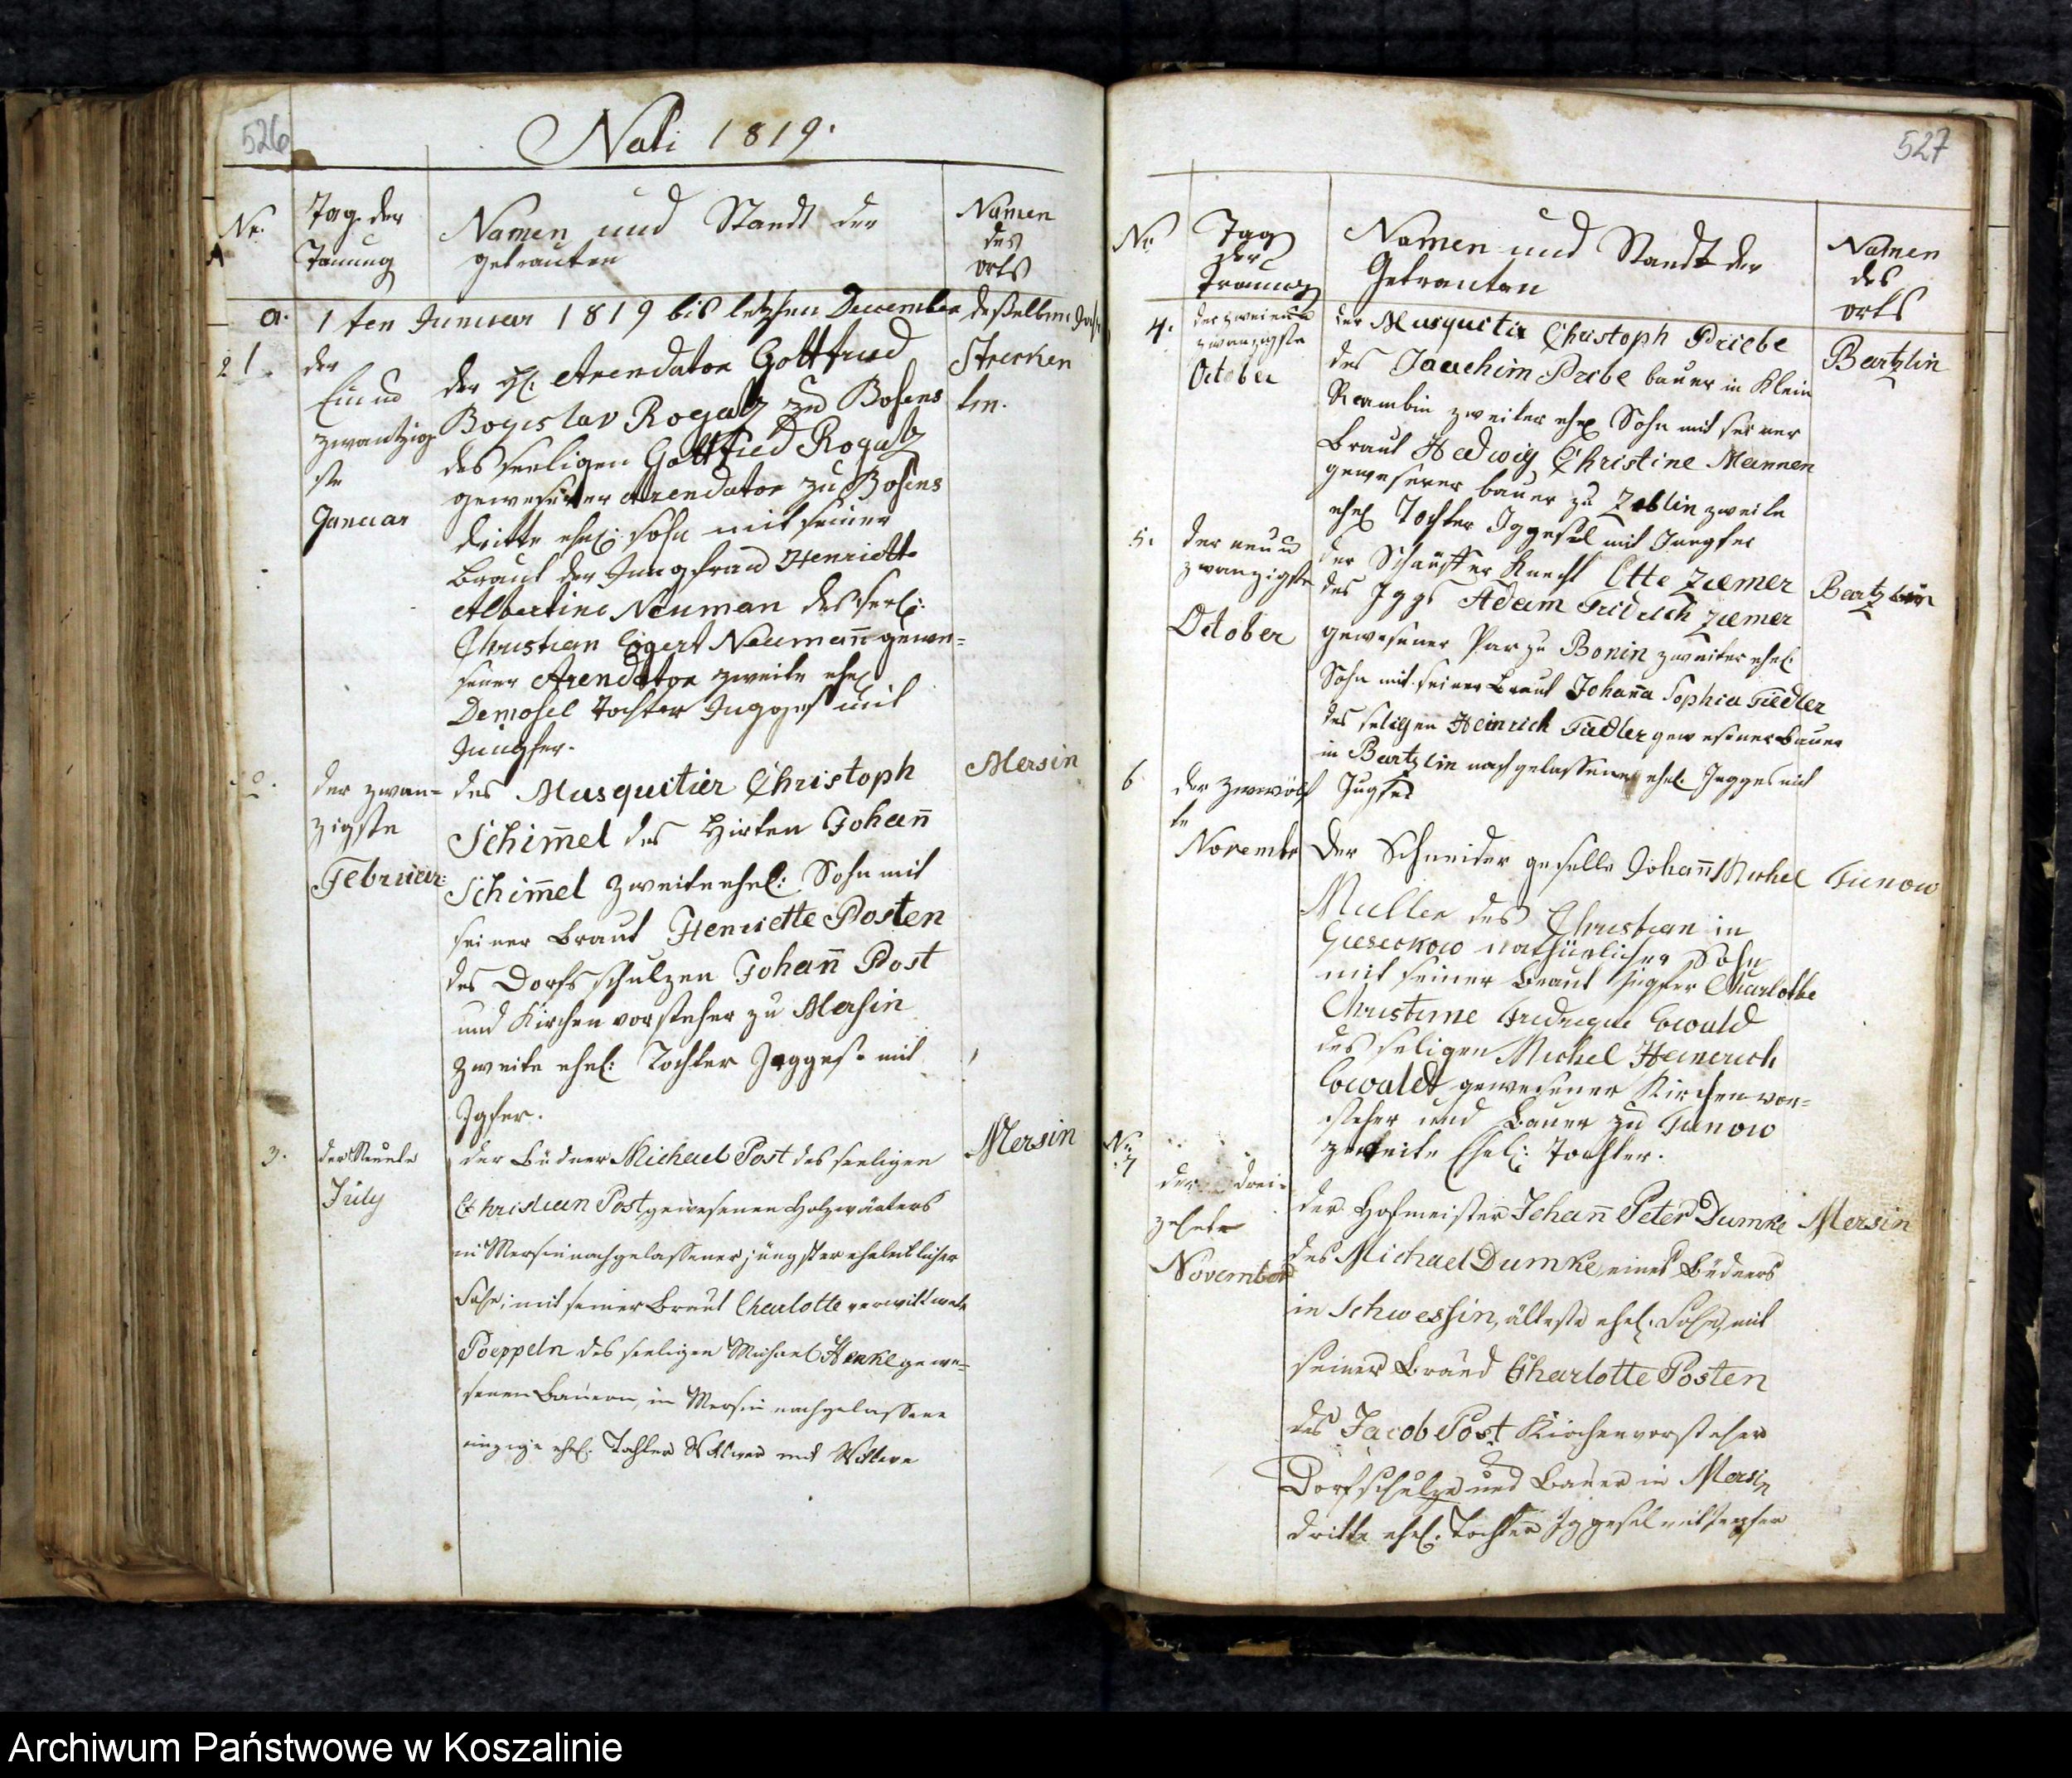 526
Nati 1819.
Nr.
Tag der
Trauung
Namen und Standt der
getrauten
Namen
des
orts
a. 1 ten Januar 1819 bis letzten December deßelben
1.
der
Ein und
zwantzig
ste
Januar
der H. Arendator Gottfried
Bogislav Rogatz zu Bosens
des seeligen Gottfried Rogatz
gewesener Arendator zu Bosens
dritte ehel: Sohn mit seiner
Braut der Jungfrau Henriette
Albertine Neuman des seel:
Christian Ewert Neuman̄ gewe=
sener Arendator zweite ehel
Demosel Tochter Jungges mit
Jungfer.
Strecken
tin.
2.
der zwan=
zigste
Februar:
des Musquitier Christoph
Schim̄el des Hirten Johan̄
Schim̄el zweite ehel: Sohn mit
seiner Braut Henriette Posten
des Dorfsschulzen Johan̄ Post
und Kirchenvorsteher zu Mersin
zweite ehel: Tochter Jggeß. mit
Jgfer.
Mersin
3.
der Neunte
July
der Büdner Michael Post des seeligen
Christian Post gewesenen Holzwärters
in Mersin nachgelassener jüngster eheleiblicher
Sohn, mit seiner Braut Charlotte verwittwete
Poeppeln des seeligen Michael Henke gewe=
senen Bauern, in Mersin nachgelassene
einzige ehel: Tochter Wittwer mit Wittwe
Mersin
527
Nr.
Tag
der
Trauung
Namen und Standt der
Getrauten
Namen
des
orts
4.
der zwei und
zwanzigste
October
der Musquetir Christoph Priebe
des Joachim Pribe bauer in Klein
Reambin zweiter ehel Sohn mit seiner
Braut Hedwig Christine Mannen
gewesener bauer zu Zeblin zweite
ehel Tochter Jggesel mit Jungfer
Bartzlin
5.
der neun u
zwanzigste
October
der Schäffer Knecht Otte Ziemer
des Jggs Adam Fridrich Ziemer
gewesener Par zu Bonin zweiter ehel.
Sohn mit seiner Braut Johan̄a Sophia Fiedler
des seligen Heinrich Fiedler gewesener Bauer
in Bartzlin nachgelassene ehel. Jngges mit
Jugfer
Bartzlin
6
der zwwölf
te
Novembr
Der Schneider geselle Johan̄ Michel
Muller des Christian in
Gieseckow nathürlicher Sohn
mit seiner Braut Jugfer Charlotte
Christine Fridrique Ewald
des seligen Michel Heinerich
Ewaldt gewesener Kirchenvor=
steher und Bauer zu Funow
zweite Ehel: Tochter.
Funow
Nr.
7
der drei=
zehnte
November
der Hofmeister Johan̄ Peter Dumke
des Michael Dumke, eines Büdners
in Schwessin, älteste ehel. Sohn, mit
seiner Braud Charlotte Posten
des Jacob Post Kirchenvorsteher
Dorfschulze und Bauer in Mersin
dritte ehel. Tochter Jggesel mit Jugfer
Mersin
Archiwum Państwowe w Koszalinie